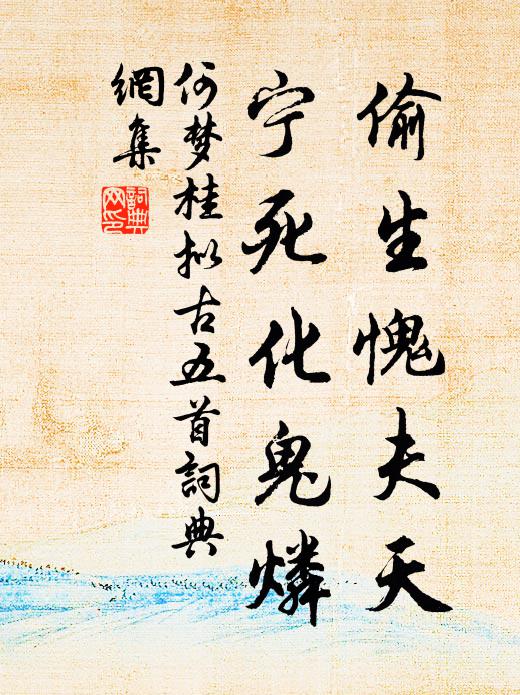 偷生愧夫天
宁死化鬼燐
何梦桂拟古五首詞典
網集
詞典
网印